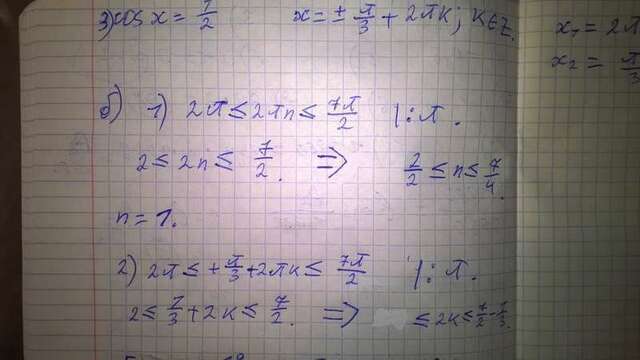 3) cos x = 1/2 x = ± π/3 + 2πk; k∈Z.
x₁ = 2π
x₂ = π/3
б) 1) 2π ≤ 2πn ≤ 7π/2 |: π.
2 ≤ 2n ≤ 7/2. ⇒ 2/2 ≤ n ≤ 7/4.
n = 1.
2) 2π ≤ + π/3 + 2πk ≤ 7π/2 |: π.
2 ≤ 1/3 + 2k ≤ 7/2. ⇒ ≤ 2k ≤ 7/2 - 1/3.